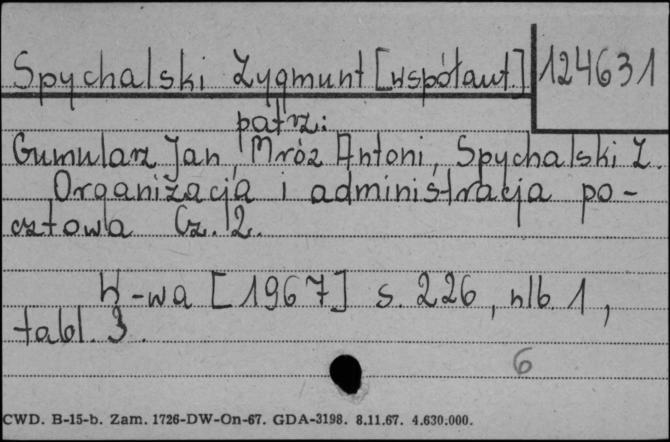 Spychalski Zygmunt [współaut.] 124631
patrz:
Gumularz Jan, Mróz Antoni, Spychalski Z.
Organizacja i administracja po-
cztowa Cz. 2.
W-wa [1967] s. 226, nlb. 1,
tabl. 3.
6
CWD. B-15-b. Zam. 1726-DW-On-67. GDA-3198. 8.11.67. 4.630.000.